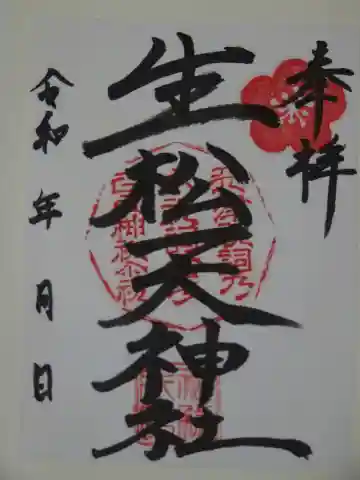 奉拝
生松天神社
令和 年 月 日